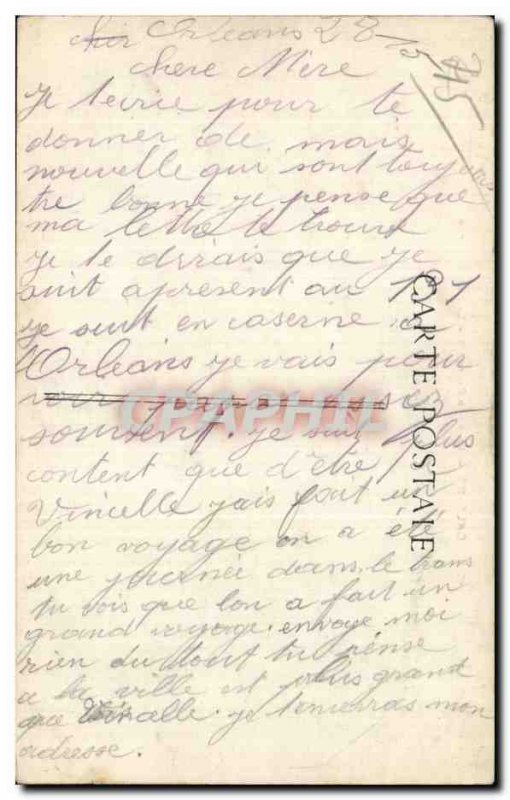 Orleans 28
chere Mère
Je tecrie pour te
donner de mais
nouvelle qui sont toujours
tre bonne je pense que
ma lettre te trouve
je te dirais que je
suit apresent au 131
je suit en caserne a
Orleans je vais pour
voir
souvent. je suit plus
content que d'être
Vincelle jais fait un
bon voyage on a été
une journee dans le trans
tu vois que lon a fait un
grand voyage. envoye moi
rien du tout tu pense
a la ville est plus grand
que Vincelle. je tenverras mon
adresse.
CARTE POSTALE
CPAPHIL